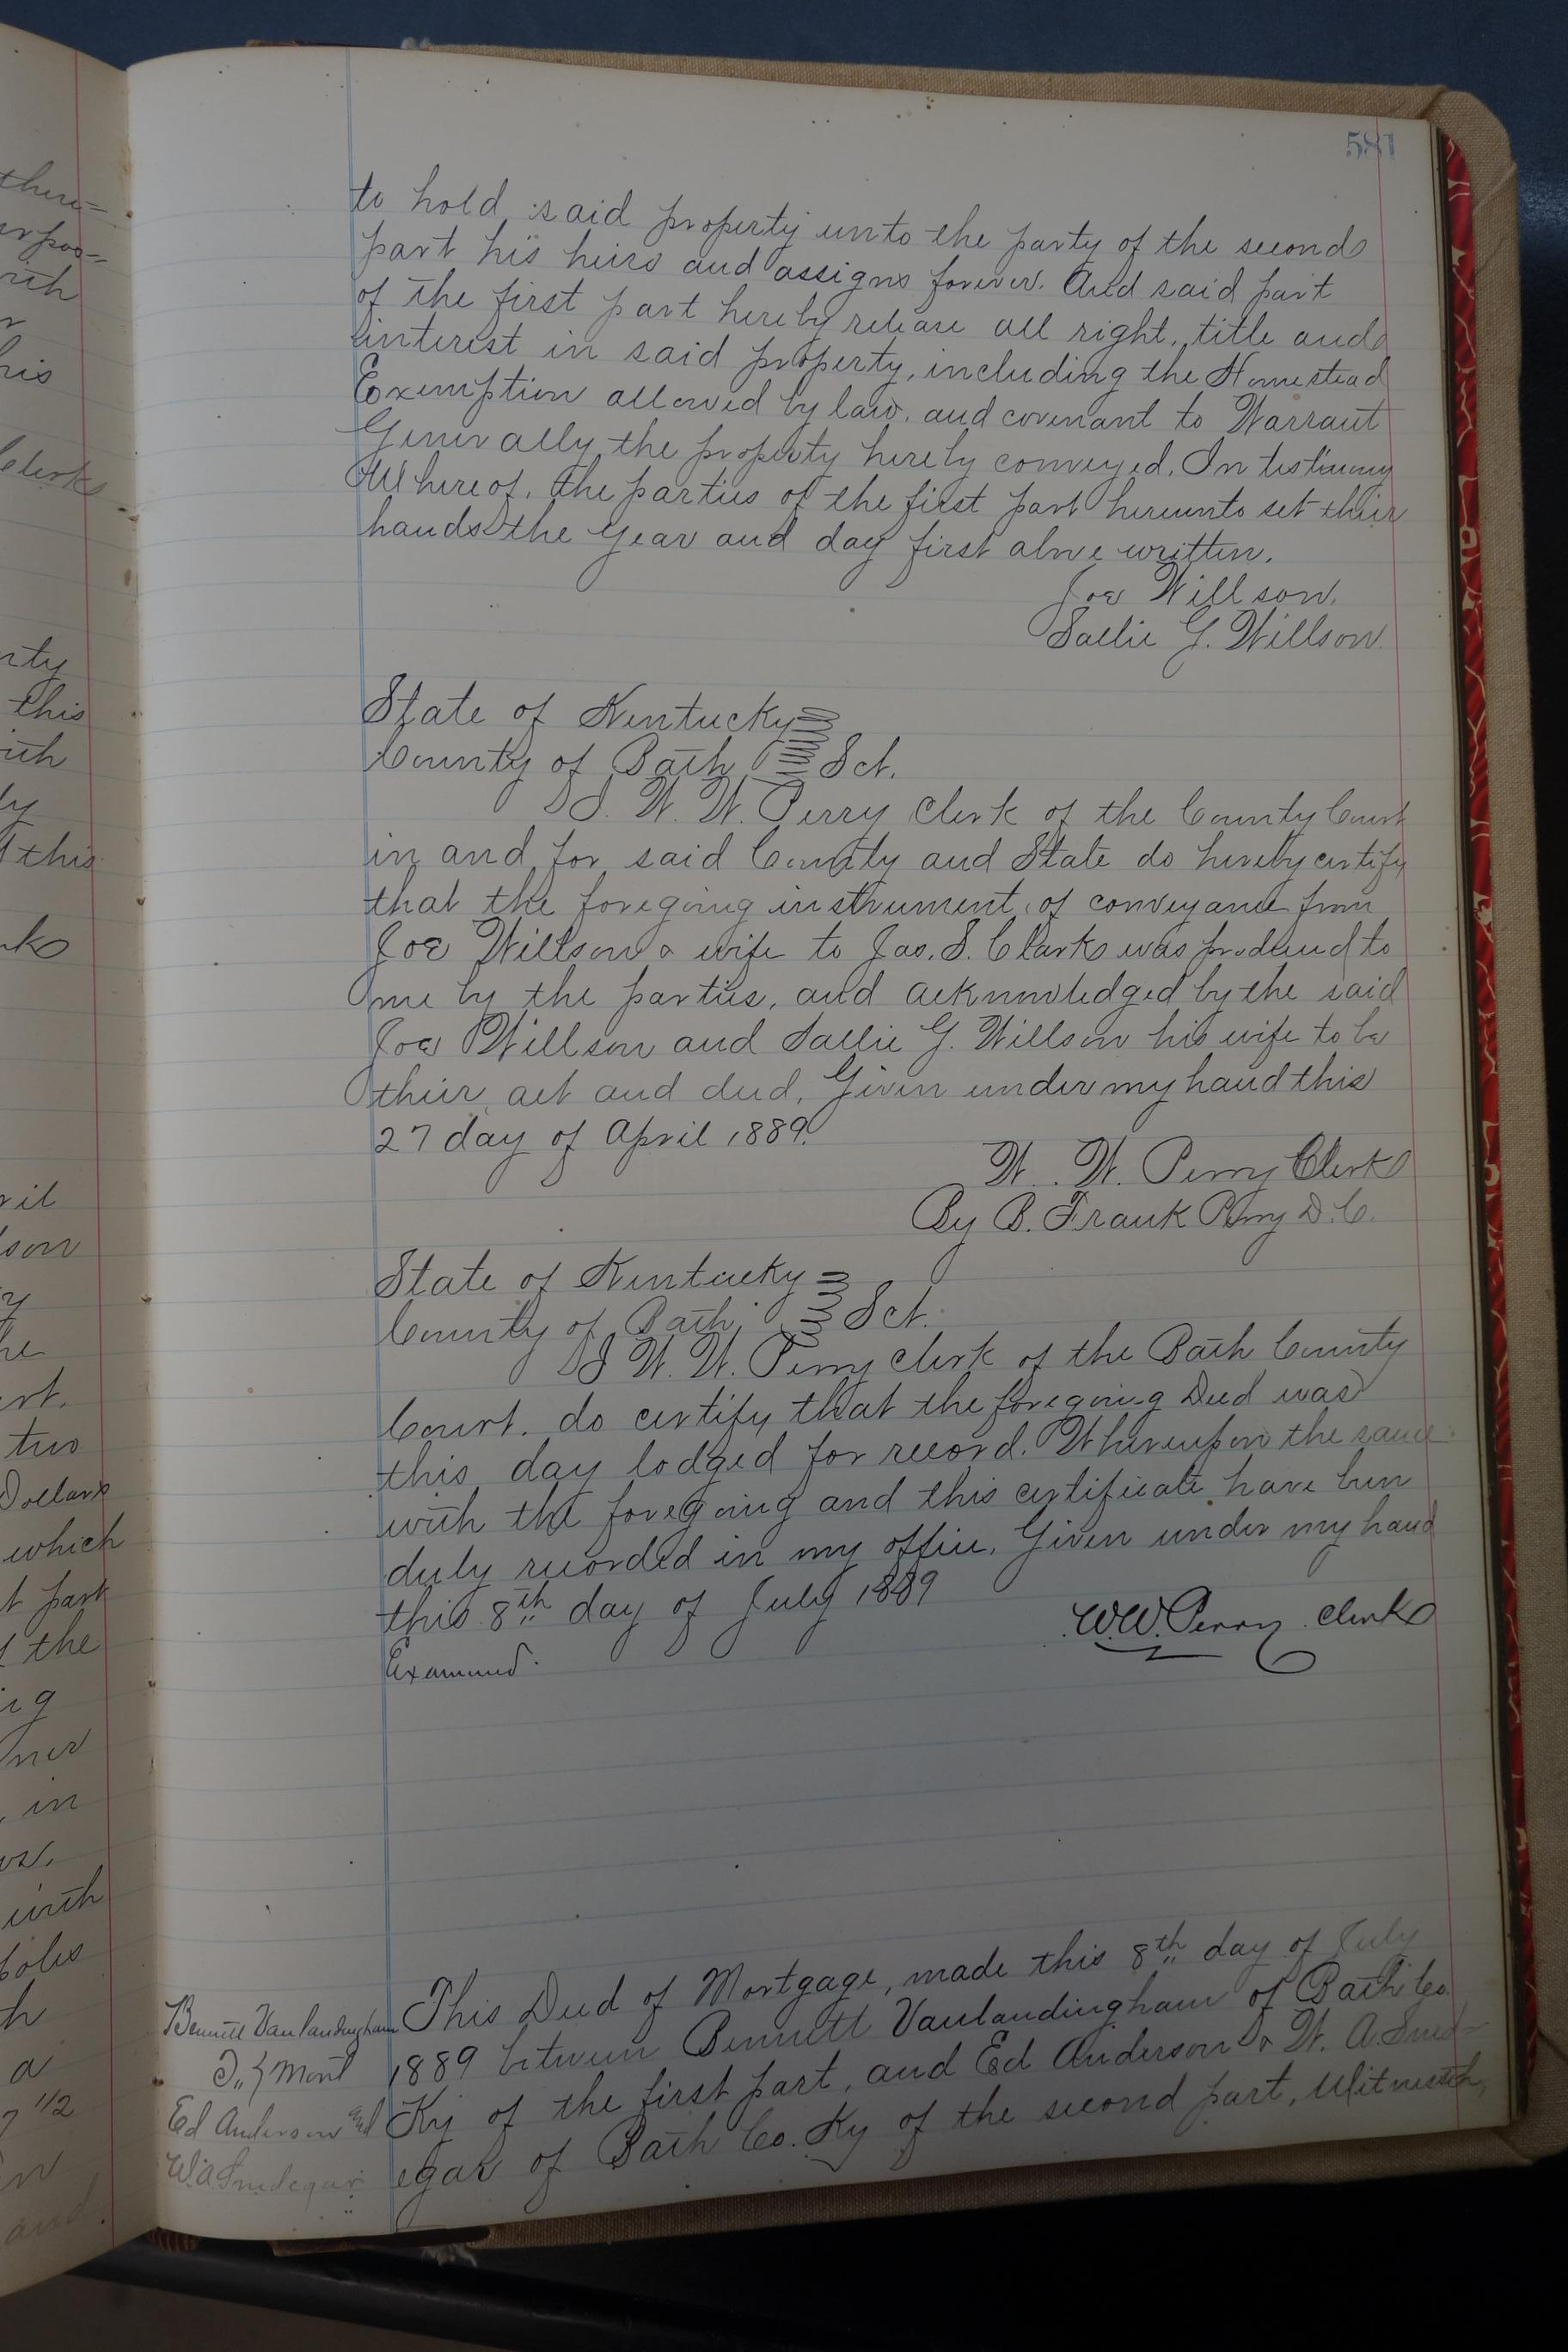 581
to hold said property unto the party of the second
part his heirs and assigns forever. And said part
of the first part hereby release all right, title and
interest in said property, including the Homestead
Exemption allowed by law. and covenant to Warrant
Generally the property hereby conveyed. In testimony
Whereof, the parties of the first part hereunto set their
hands the year and day first above written.
Joe Willson.
Sallie G. Willson.
State of Kentucky
County of Bath Sct.
I. W. W. Perry Clerk of the County Court
in and for said County and State do hereby certify
that the foregoing instrument of conveyance from
Joe Willson & wife to Jas. S. Clark was produced to
me by the parties, and acknowledged by the said
Joe Willson and Sallie G. Willson his wife to be
their act and deed. Given under my hand this
27 day of April 1889.
W. W. Perry Clerk
By B. Frank Perry D.C.
State of Kentucky
County of Bath Sct.
I W. W. Perry Clerk of the Bath County
Court. do certify that the foregoing Deed was
this day lodged for record. Whereupon the same
with the foregoing and this certificate have been
duly recorded in my office. Given under my hand
this 8th day of July 1889
W.W. Perry Clerk
Examined.
This Deed of Mortgage, made this 8th day of July
1889 between Bennett Vanlandingham of Bath Co.
Ky of the first part, and Ed Anderson & W. A. Smed-
egar of Bath Co. Ky of the second part, Witnesseth,
Bennett Vanlandingham
To } Mort
Ed Anderson and
W.A. Smedegar
there-
with
his
Clerk
this
with
this
two
Dollars
which
t part
the
in
with
poles
a
1/2
and